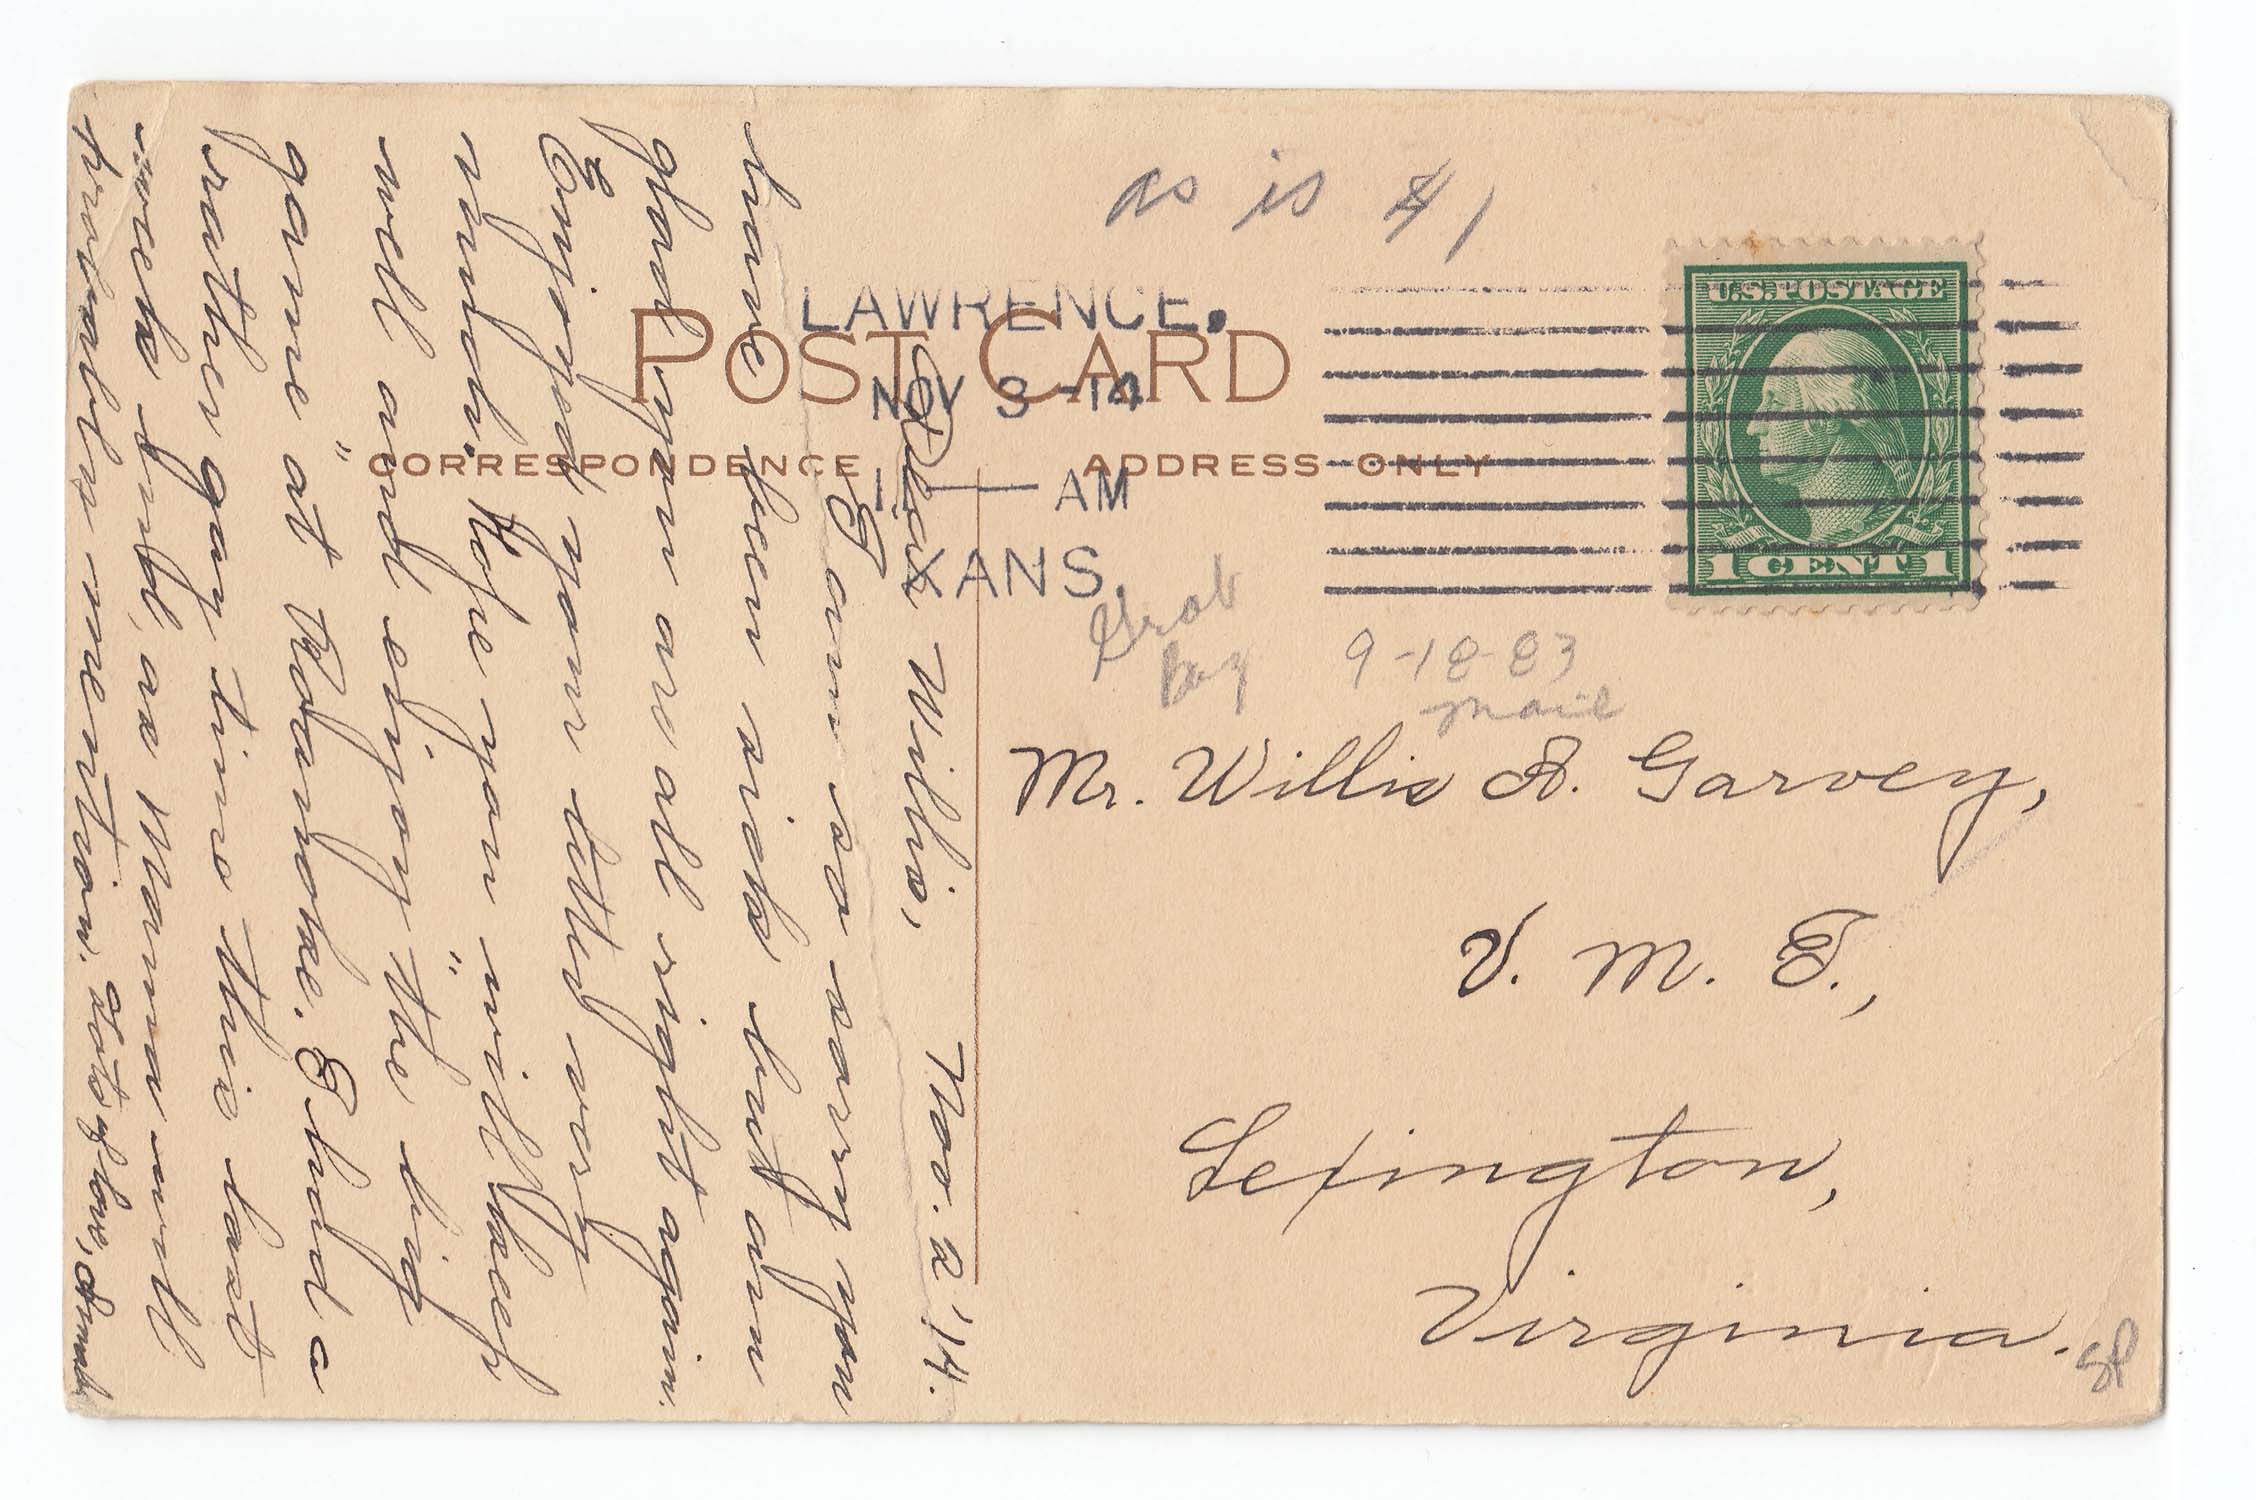 as is $1
LAWRENCE.
NOV 3 -14
1 - AM
KANS.
U.S. POSTAGE
1 CENT 1
POST CARD
CORRESPONDENCE
ADDRESS ONLY
Grab
bag
9-18-83
mail
Mr. Willis A. Garvey,
V. M. I.,
Lexington,
Virginia.
Dear Willis, Nov. 2 '14.
I am so sorry you
have been sick but am
glad you are all right again.
Enjoyed your letter very
much. Hope you "will keep
well and enjoy the big
game" at Roanoke. I had a
rather gay time this last
week end, as Mama will
probably mention. Lots of love,